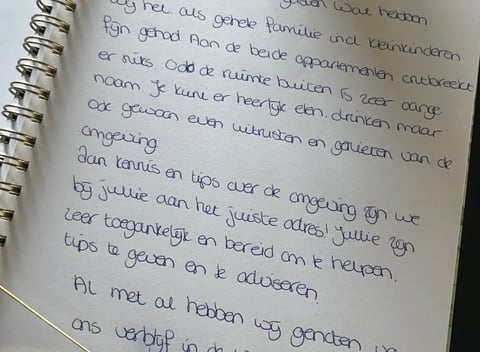 wat hebben
wij het als gehele familie incl kleinkinderen
fijn gehad Aan de beide appartementen ontbreekt
er niks. Ook de ruimte buiten is zeer aange
naam Je kunt er heerlijk eten, drinken maar
ook gewoon even uitrusten en genieten van de
omgeving
Aan kennis en tips over de omgeving zijn we
bij jullie aan het juiste adres! Jullie zijn
zeer toegankelijk en bereid om te helpen,
tips te geven en te adviseren.
Al met al hebben wij genoten
ons verblijf in de